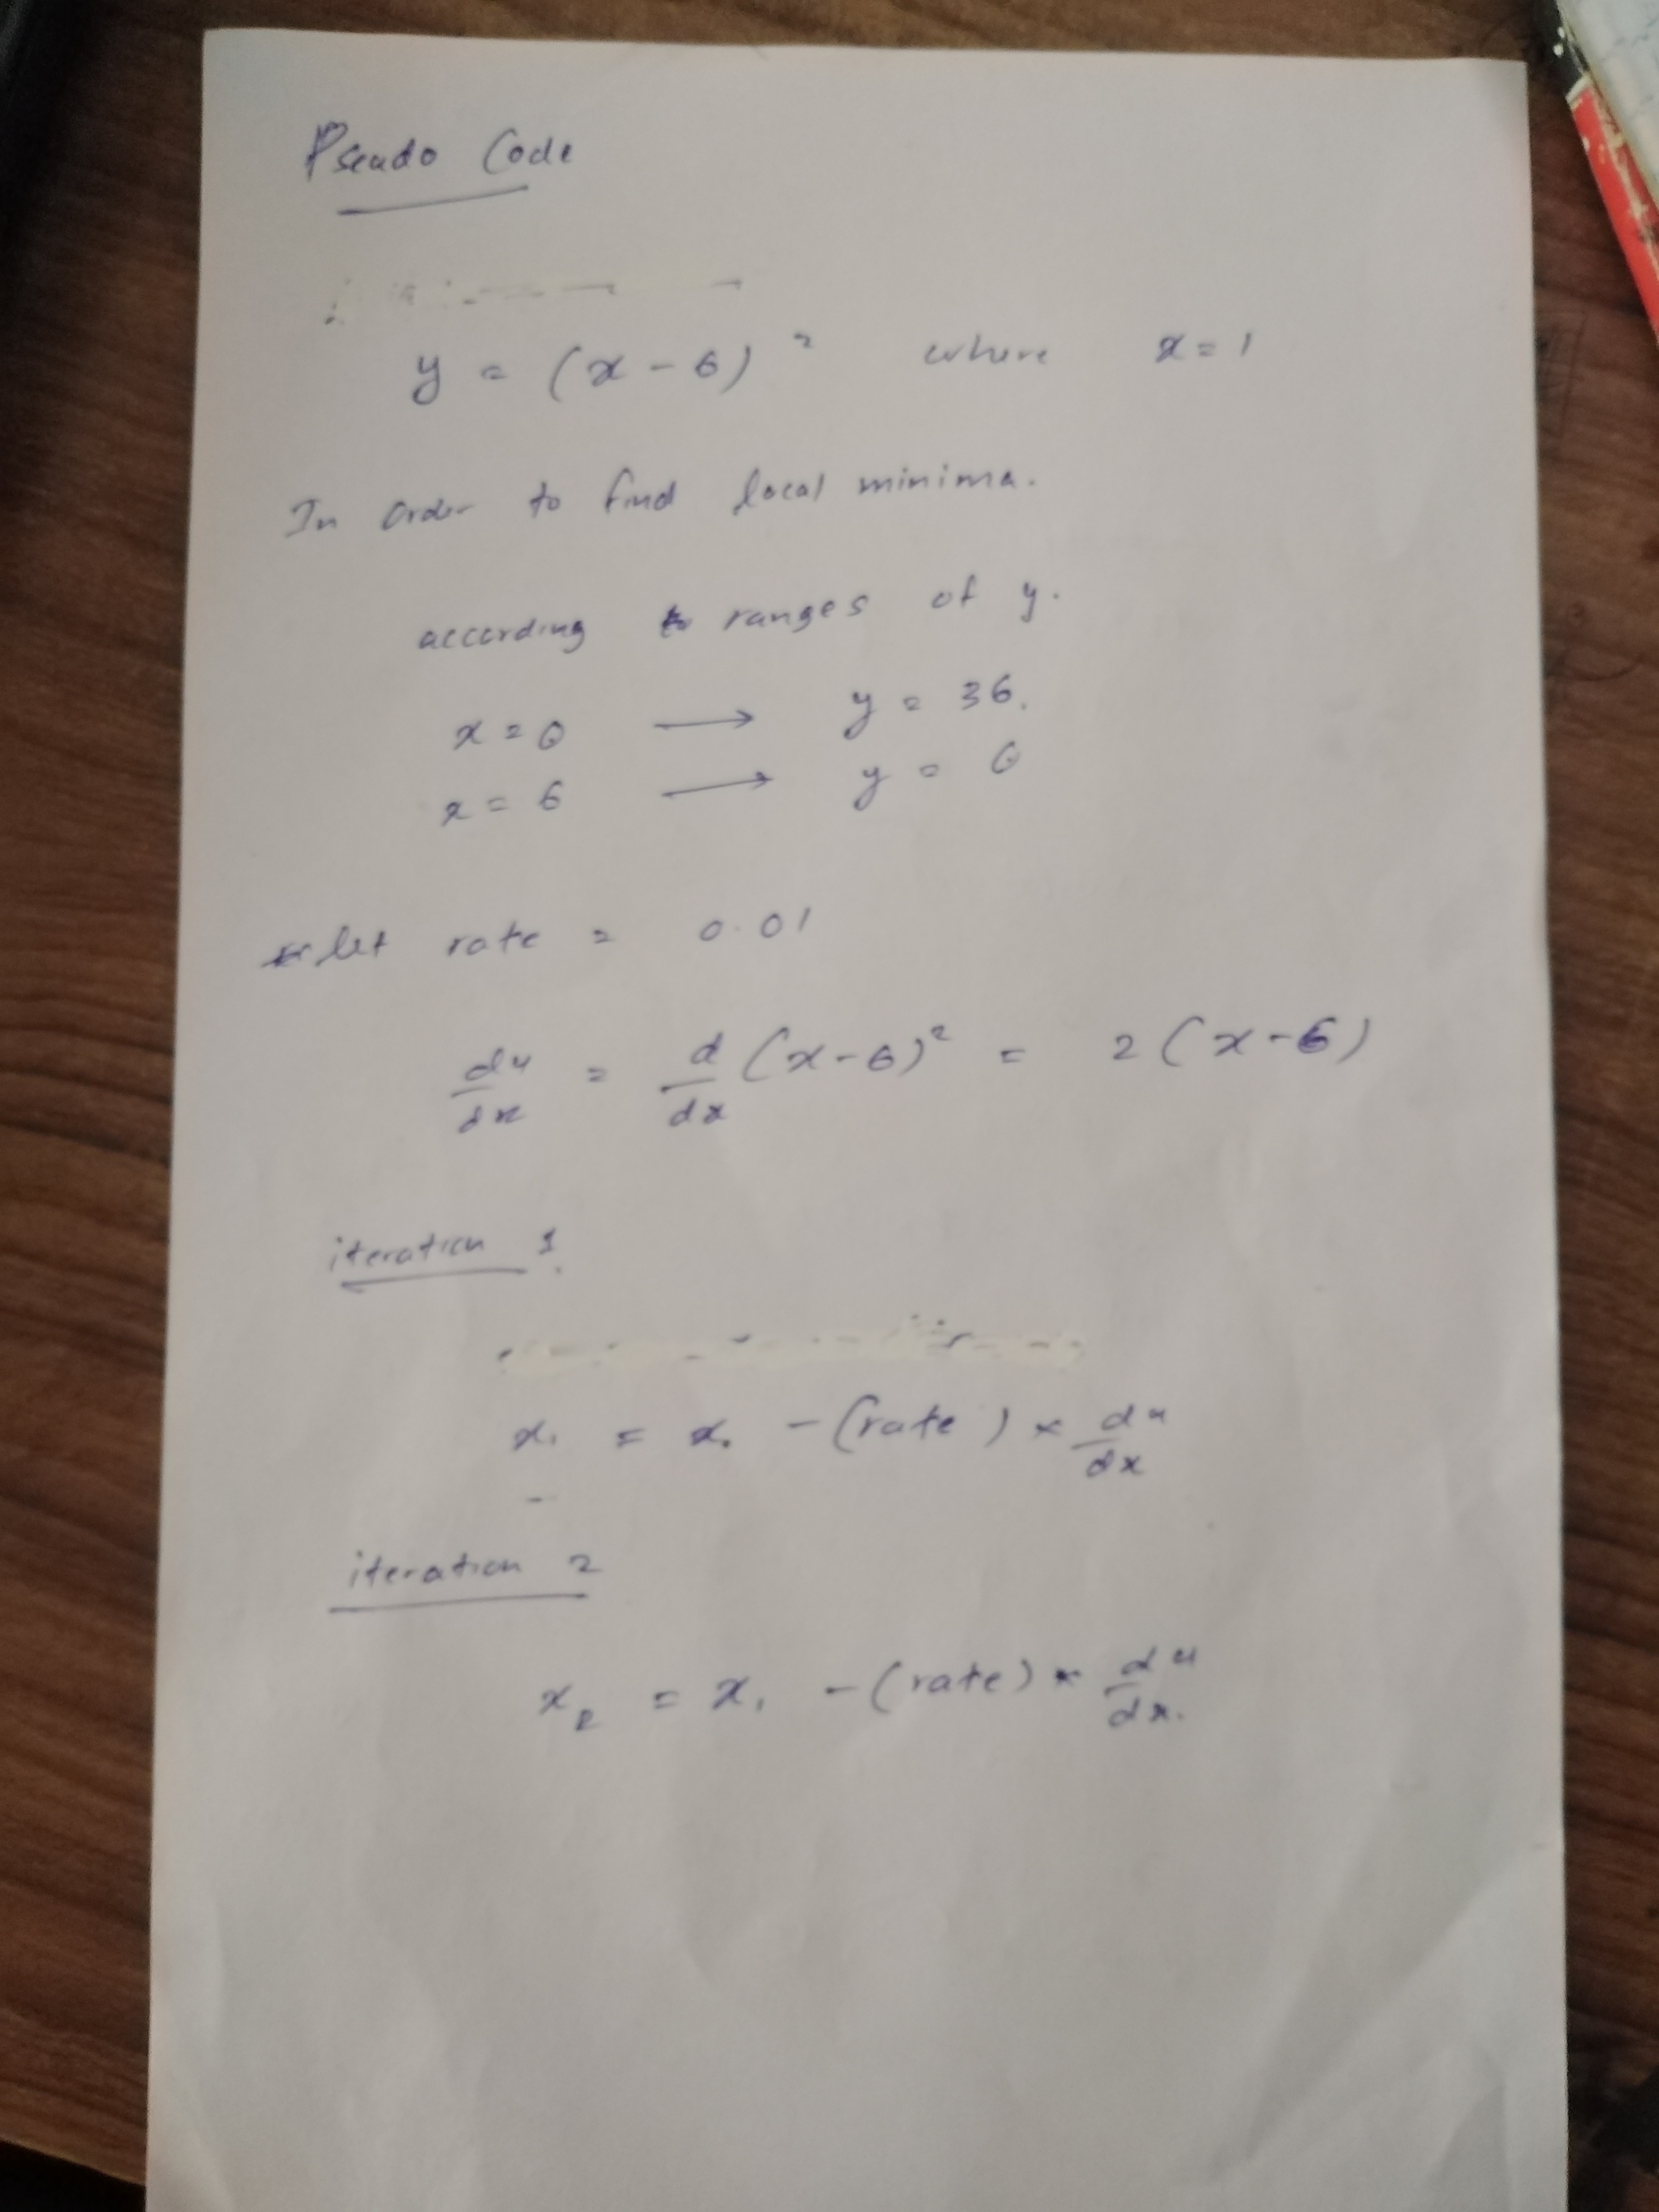 Pseudo Code
y = (x - 6)² where x = 1
In order to find local minima.
according to ranges of y.
x = 0 → y = 36.
x = 6 → y = 0
let rate = 0.01
dy/dx = d/dx (x-6)² = 2(x-6)
iteration 1.
x₁ = x₀ - (rate) × dy/dx
iteration 2
x₂ = x₁ - (rate) × dy/dx.